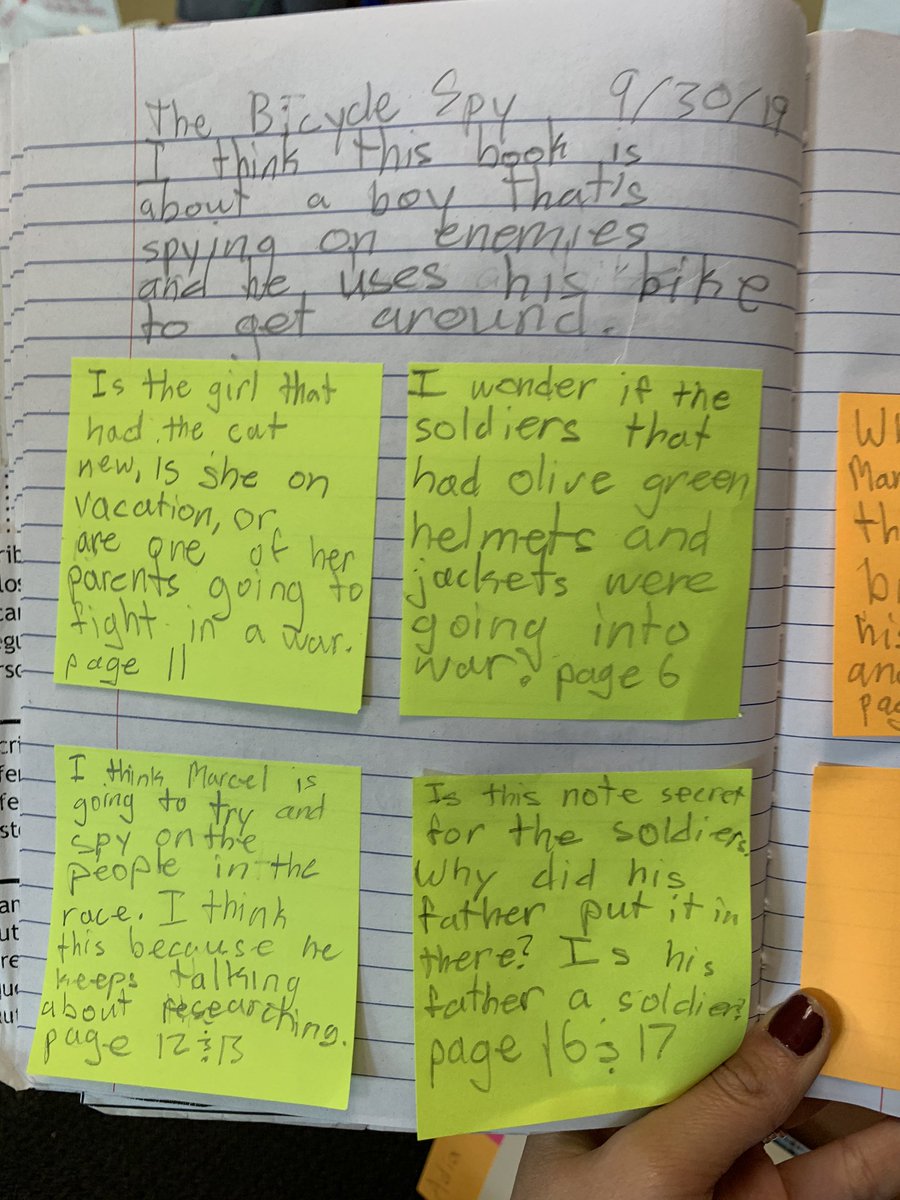 The Bicycle Spy 9/30/19
I think this book is
about a boy that's
spying on enemies
and he uses his bike
to get around.
Is the girl that
had the cat
new, is she on
vacation, or
are one of her
parents going to
fight in a war.
page 11
I wonder if the
soldiers that
had olive green
helmets and
jackets were
going into
war? page 6
I think Marcel is
going to try and
spy on the
people in the
race. I think
this because he
keeps talking
about researching.
page 12 & 13
Is this note secret
for the soldiers.
Why did his
father put it in
there? Is his
father a soldier?
page 16 & 17
his